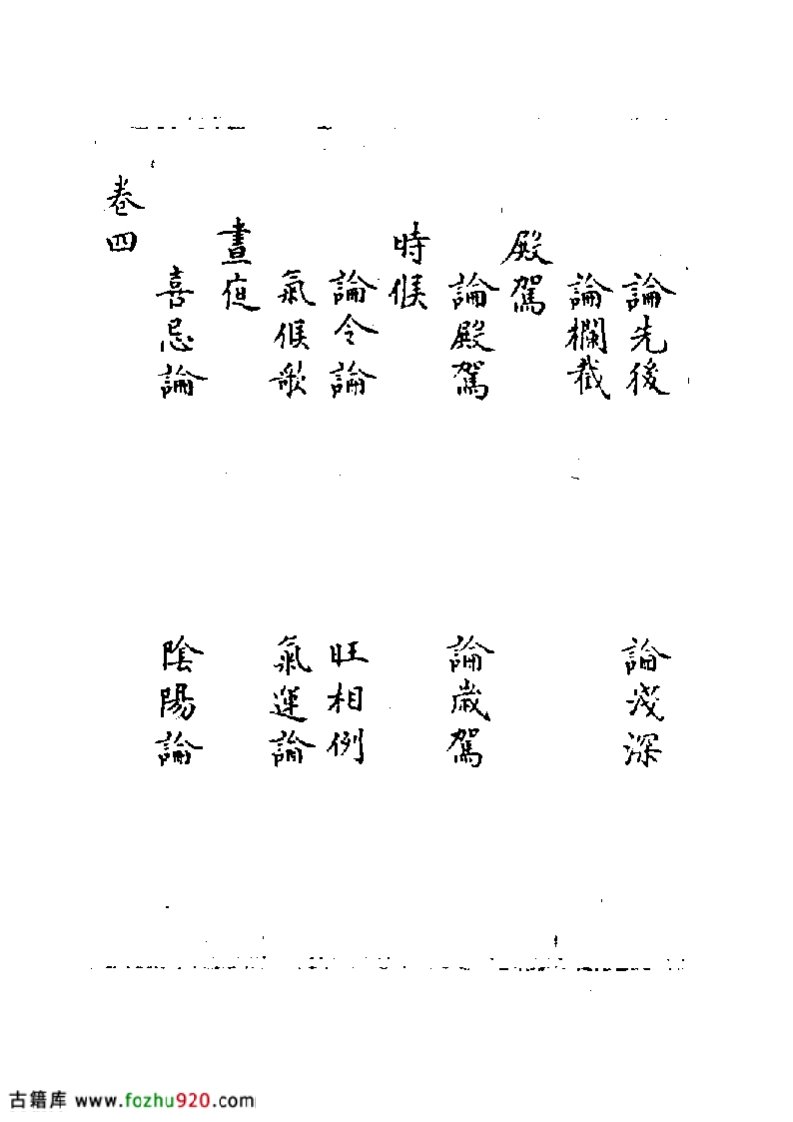 論先後　論淺深
論欄截
殿駕
論殿駕　論歲駕
時候
論令論　旺相例
氣候歌　氣運論
晝夜
喜忌論　陰陽論
卷四
古籍库 www.fozhu920.com